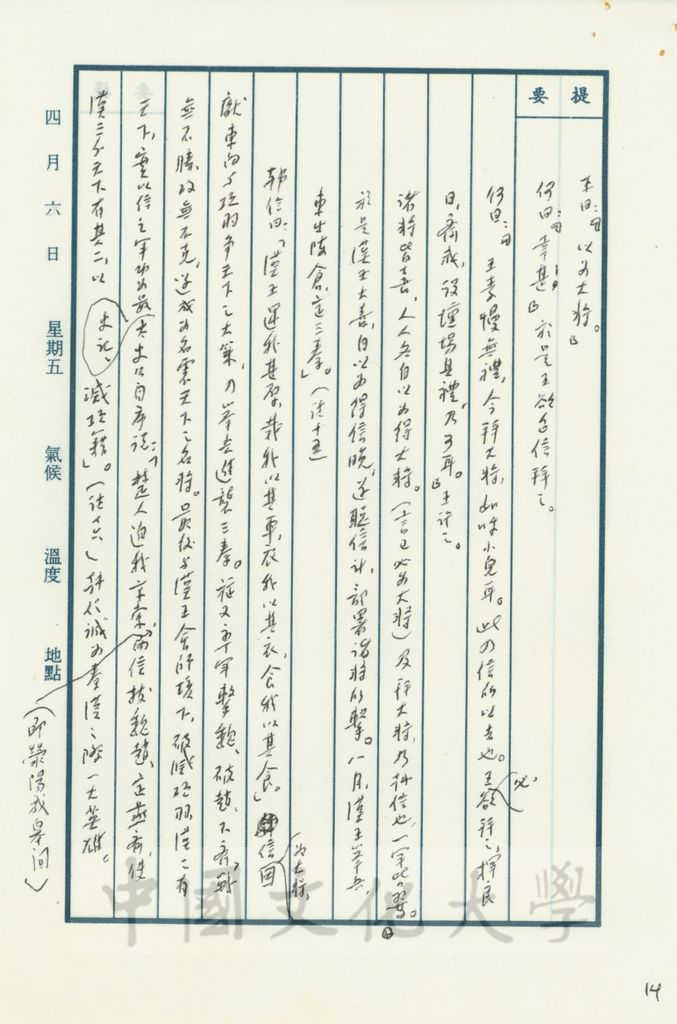 提要
王曰：「以為大將。」
何曰：「幸甚。」於是王欲召信拜之。
何曰：「王素慢無禮，今拜大將，如呼小兒耳。此乃信所以去也。王必欲拜之，擇良
日，齋戒，設壇場具禮，乃可耳。」王許之。
諸將皆喜，人人各自以為得大將。（言己必為大將）及拜大將，乃韓信也，一軍皆驚。
於是漢王大喜，自以為得信晚，遂聽信計，部署諸將所擊。八月，漢王舉兵，
東出陳倉，定三秦。」（註十五）
韓信曰：「漢王遇我甚厚，載我以其車，衣我以其衣，食我以其食。」信為大將，
獻東向與項羽爭天下之大策，乃舉兵進襲三秦。旋又率軍擊魏、破趙、下齊，戰
無不勝，攻無不克，遂成為名震天下之名將。最後與漢王會師垓下，破滅項羽，漢之有
天下，實以信之軍功為最大。史記太史公自序謂：「楚人迫我京索，而信拔魏趙，定燕齊，使
漢三分天下有其二，以滅項籍」。（註十六）韓信誠為秦漢之際一大英雄。
（即滎陽成皋間）
四月六日 星期五 氣候 溫度 地點
中國文化大學
14